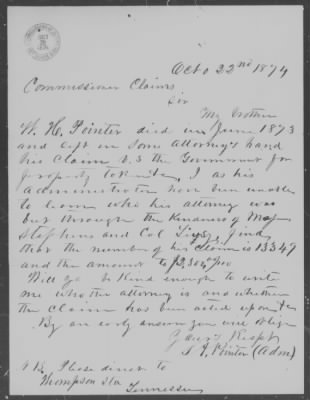 Octo 22nd 1874
Commissioner Claims
Sir
My brother
W. H. Pointer died in June 1873
and left in some Attorney's hand
his claim V.S the Government for
property taken &c. I as his
Administrator have been unable
to learn who his attorney was
but through the kindness of Maj
Stephens and Col find
that the number of his claim is 13349
and the amount to
Will yo be kind enough to write
me who the attorney is and whether
the claim has been acted upon &c
By an early answer you will oblige
Yours Respt
Pointer (Adm)
N B. Please direct to
Thompson Sta
Tennessee